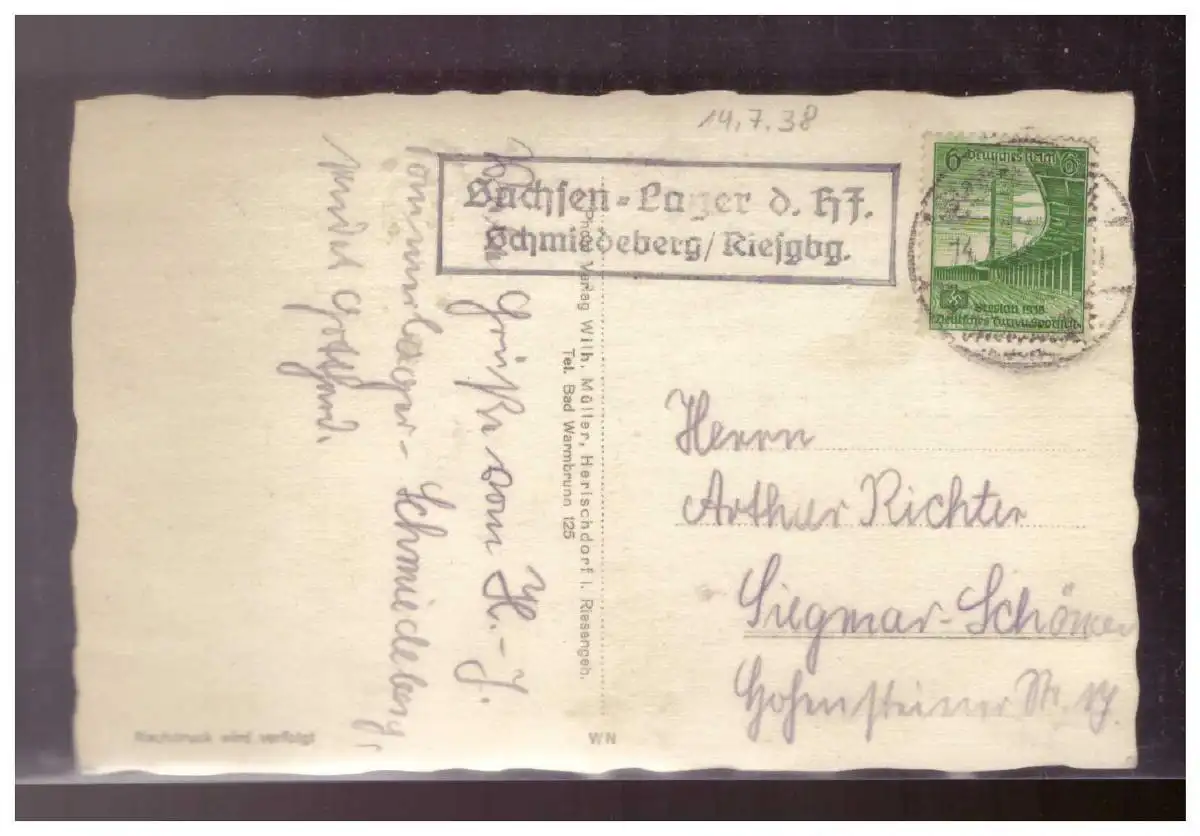 14.7.38
Sachsen-Lager d. HJ.
Schmiedeberg/Riesgbg.
6 Deutsches Reich 6
Breslau 1938
Deutsches Turn- und Sportfest
14
Grüße vom H.-J.
Sommerlager-Schmiedeberg,
Gotthard.
Photo Verlag Wilh. Müller, Herischdorf i. Riesengeb.
Tel. Bad Warmbrunn 125
Herrn
Arthur Richter
Siegmar-Schönau
Hohensteiner Str.
Nachdruck wird verfolgt
WN